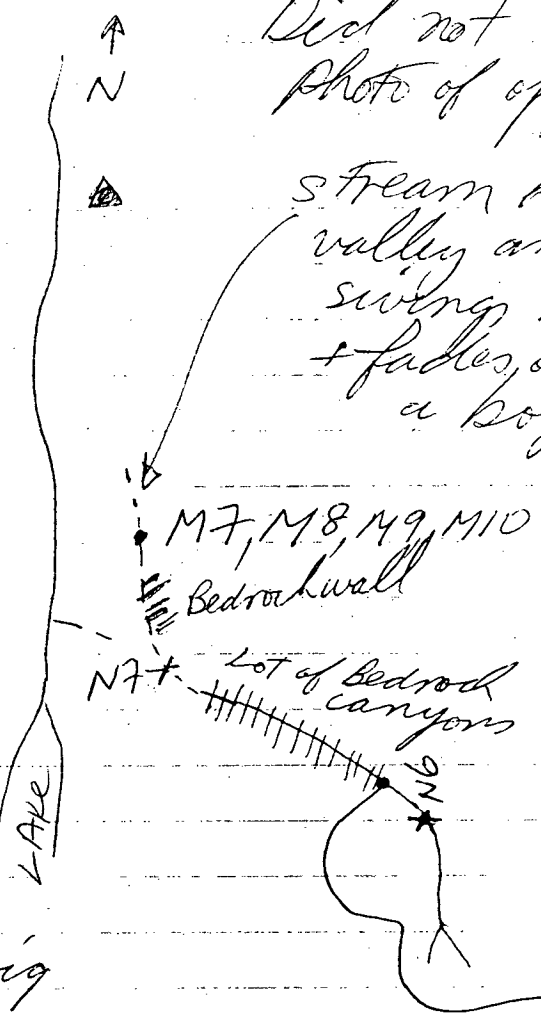 Did not
N
Photo of
stream
valley
swings
+ fades
a
M7, M8, M9, M10
Bedrock wall
N7
Lot of Bedrock
canyons
N6
LAKE